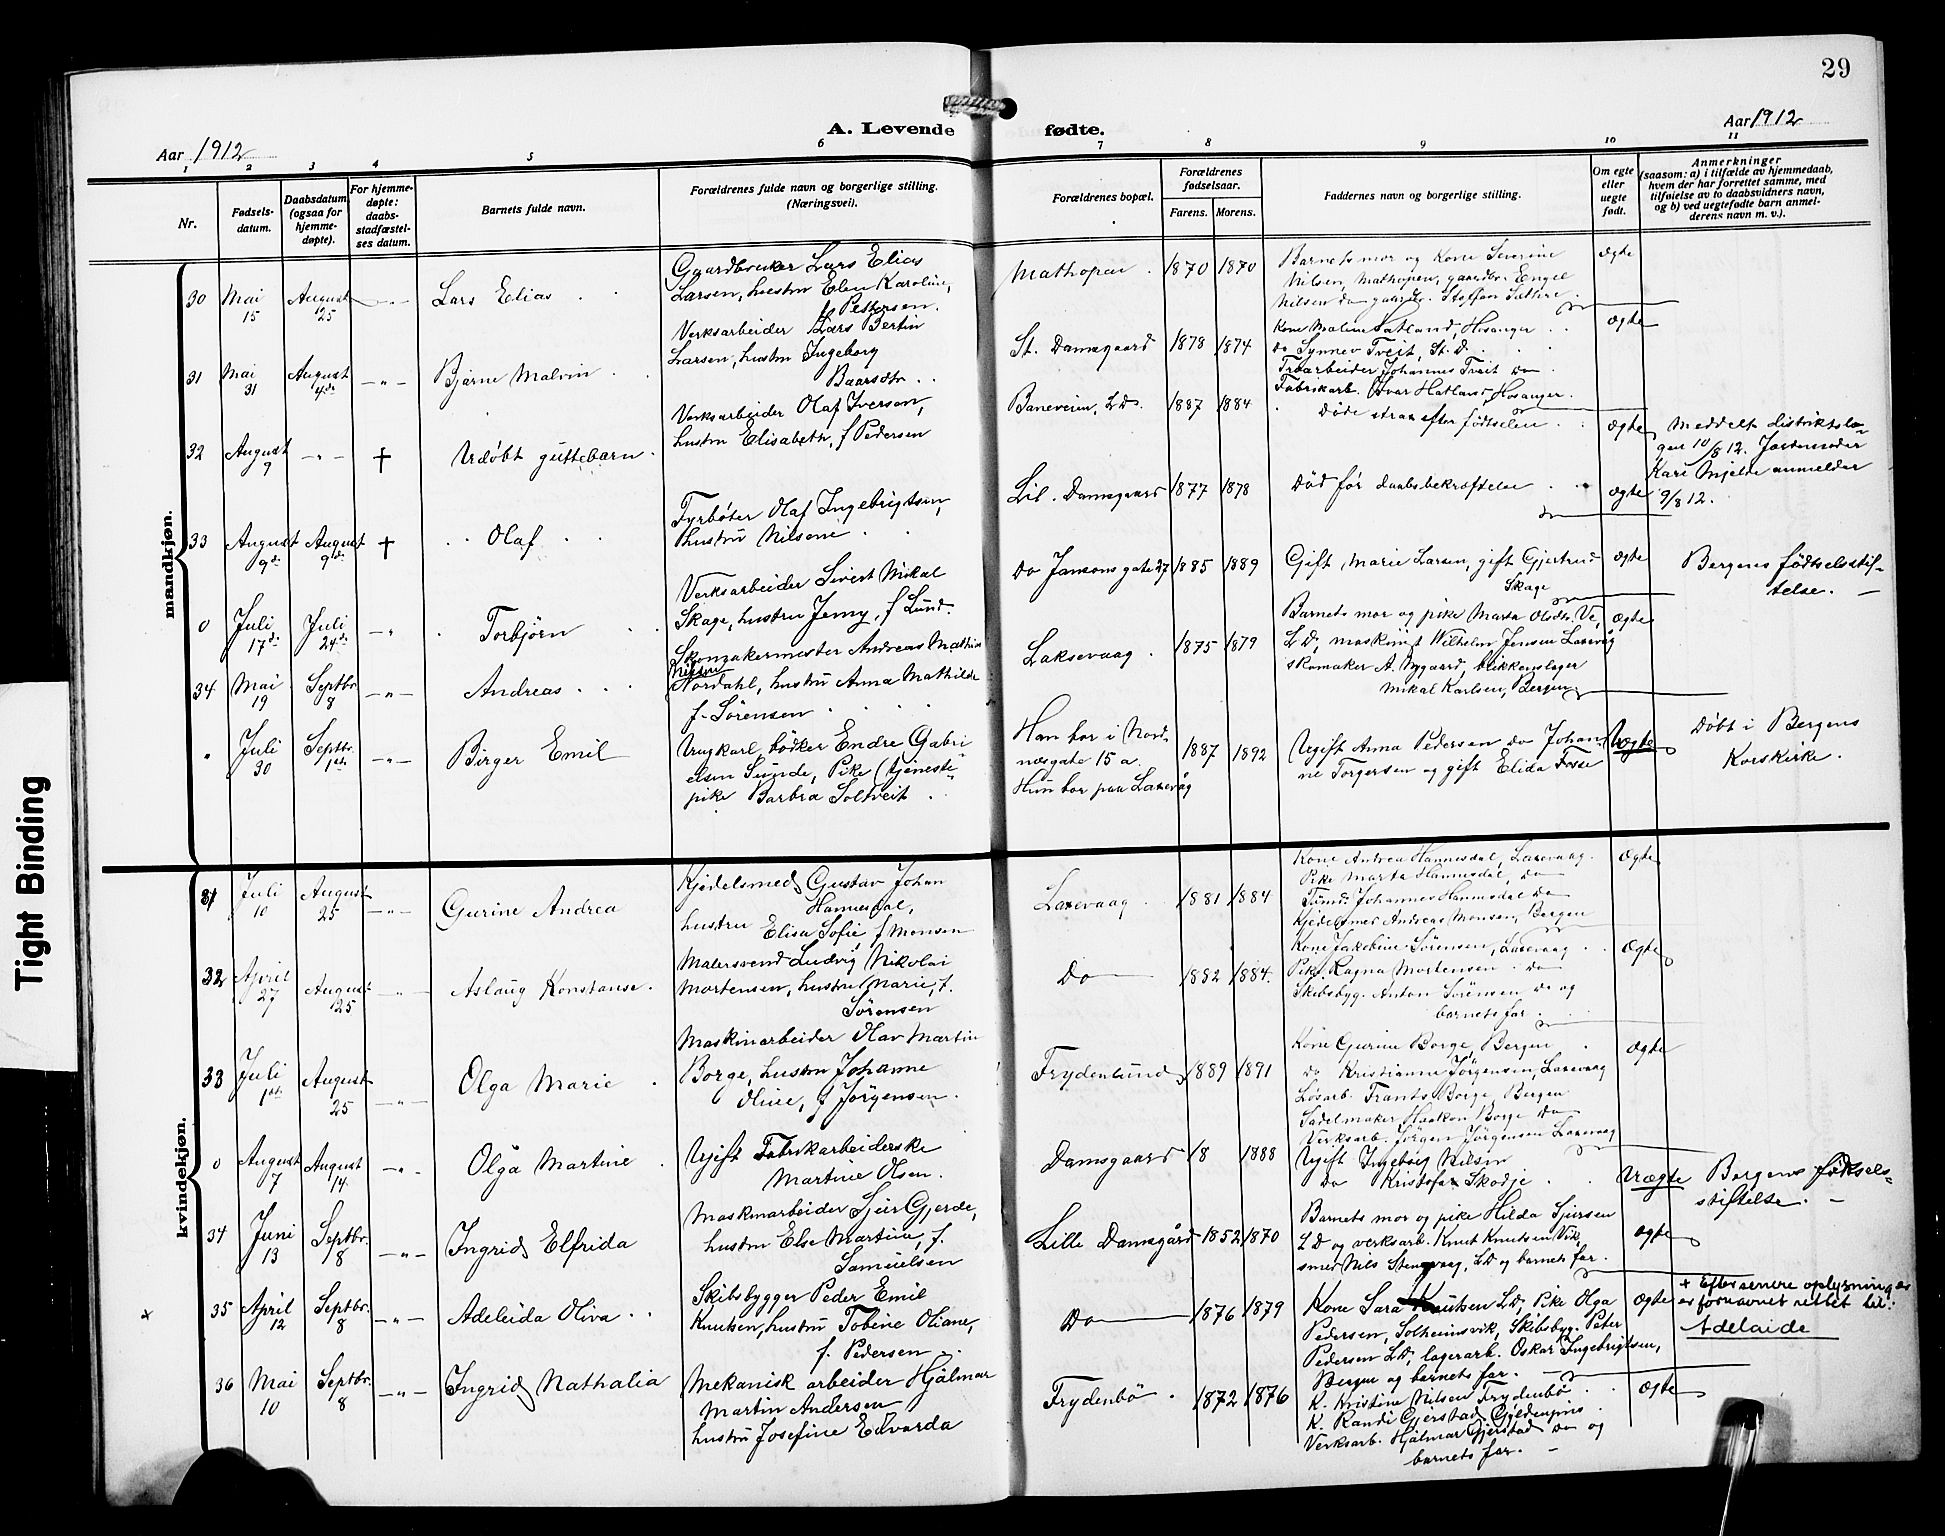 29
A. Levende fødte.
Aar 1912
Aar 1912
1 2 3 4 5 6 7 8 9 10 11
Nr.
Fødsels-
datum.
Daabsdatum
(ogsaa for
hjemme-
døpte).
For hjemme-
døpte:
daabs-
stadfæstel-
ses datum.
Barnets fulde navn.
Forældrenes fulde navn og borgerlige stilling.
(Næringsvei).
Forældrenes bopæl.
Forældrenes
fødselsaar.
Farens. Morens.
Faddernes navn og borgerlige stilling.
Om egte
eller
uegte
født.
Anmerkninger
(saasom: a) i tilfælde av hjemmedaab,
hvem der har forrettet samme, med
tilføielse av to daabsvidners navn,
og b) ved uegtefødte barn anmel-
derens navn m. v.).
mandkjøn.
30 Mai 15 August 25 -"- Lars Elias
Gaardbruker Lars Elias
Larsen, hustru Elen Karoline,
f Pettersen.
Mathopen. 1870 1870
Barnets mor og Kone Severine
Nilsen, Mathopen, gaardbr. Engel
Nilsen do gaardbr. Steffen Sæthre.
Ægte
31 Mai 31 August 4de -"- Bjarne Malvin
Verksarbeider Lars Bertin
Larsen, hustru Ingeborg
Baarsdtr.
St. Damsgaard 1878 1874
Kone Maline Hatland, Hosanger
do Synnev Tveit, St. D.
Træarbeider Johannes Tveit Do
Fabrikarb. Ivar Hatland, Hosanger.
Ægte
32 August 9 -"- † Udøbt guttebarn.
Verksarbeider Olaf Iversen,
hustru Elisabeth, f Pedersen
Baneveien, LD. 1887 1884
Døde strax efter fødselen.
Ægte
Meddelt distriktslæ-
gen 10/8 12. Jordemoder
Kari Mjelde anmelder
9/8 12.
33 August 9de August 9de † Olaf
Fyrbøter Olaf Ingebrigtsen,
hustru Nilsine
Lil. Damsgaard 1877 1878
Død før daabsbekræftelse
Ægte
0 Juli 17de Juli 24de -"- Torbjørn
Verksarbeider Sivert Mikal
Skage, hustru Jenny, f Lund.
Do Jansons gate 27 1885 1889
Gift Marie Larsen, gift Gjertrud
Skage
Ægte
Bergens fødselsstif-
telse. —
34 Mai 19 Septbr. 8 -"- Andreas
Skomakermester Andreas Mathias
Nordahl, hustru Anna Mathilde
f. Sørensen
Laksevaag. 1875 1879
Barnets mor og pike Marta Olsdtr. Ve,
LD, maskinist Wilhelm Jensen Laxevåg
skomaker A. Nygaard, blikkenslager
Mikal Karlsen, Bergen
Ægte
" Juli 30 Septbr. 1ste -"- Birger Emil
Ungkarl, bødker Endre Gabri
elsen Sunde, Pike (tjeneste-
pike Barbra Soltveit
Han bor i Nord-
nesgate 15 a.
Hun bor paa Laxevåg
1887 1892
Ugift Anna Pedersen do Johan-
ne Torgersen og gift Elida Fosse
Uægte
Døbt i Bergens
Korskirke.
kvindekjøn.
31 Juli 10 August 25 -"- Gurine Andrea
Kjedelsmed Gustav Johan
Hannesdal,
hustru Elisa Sofie f Monsen
Laxevaag. 1881 1884
Kone Andrea Hannisdal, Laxevaag.
Pike Marta Hannisdal, do
Tømd. Johannes Hannisdal Do
Kjedelsmed Andreas Monsen, Bergen
Ægte
32 April 27 August 25 -"- Aslaug Konstanse.
Malersvend Ludvig Nikolai
Mortensen, hustru Marie, f.
Sørensen
Do 1882 1884.
Kone Jakobine Sørensen, Laxevaag
Pike Ragna Mortensen do
Skibsbyg. Anton Sørensen do og
barnets far.
Ægte
33 Juli 1ste August 25 -"- Olga Marie
Maskinarbeider Olav Martin
Borge, hustru Johanne
Oline, f Jørgensen.
Frydenlund, 1889 1891
Kone Gurine Borge, Bergen
do Kristianne Jørgensen, Laxevaag
Løsarb. Frants Borge, Bergen
Sadelmaker Haakon Borge Do
Verksarb. Jørgen Jørgensen Laxevaag
Ægte
0 August 7 August 14. -"- Olga Martine
Ugift Fabrikarbeiderske
Martine Olsen.
Damsgaard 18 1888
Ugift Ingeborg Nilsen
Do Kristofar Skodje
Uægte
Bergens fødsels-
stiftelse. —
34 Juni 13 Septbr. 8 -"- Ingrid Elfrida
Maskinarbeider Sjur Gjerde,
hustru Else Martine, f.
Samuelsen
Lille Damsgård 1852 1870
Barnets mor og pike Hilda Sjursen
LD og verksarb. Knut Knutsen Vik,
smed Nils Stengevaag, LD og barnets far.
Ægte
× 35 April 12 Septbr. 8 -"- Adeleida Oliva
Skibsbygger Peder Emil
Knutsen, hustru Tobine Oliane,
f. Pedersen
Do 1876 1879
Kone Sara Knutsen LD, Pike Olga
Pedersen, Solheimsvik, Skibsbyg. Peter
Pedersen LD, lagerarb. Oskar Ingebrigtsen,
Bergen og barnets far.
Ægte
+ Efter senere oplysninger
er fornavnet rettet til:
Adelaide
36 Mai 10 Septbr. 8 -"- Ingrid Nathalia
Mekanisk arbeider Hjalmar
Martin Andersen
hustru Josefine Edvarda
Frydenbø. 1872 1876
K. Kristine Nilsen Frydenbø
K. Randi Gjerstad, Gyldenpris
Verksarb. Hjalmar Gjerstad Do og
barnets far. —
Ægte
Tight Binding